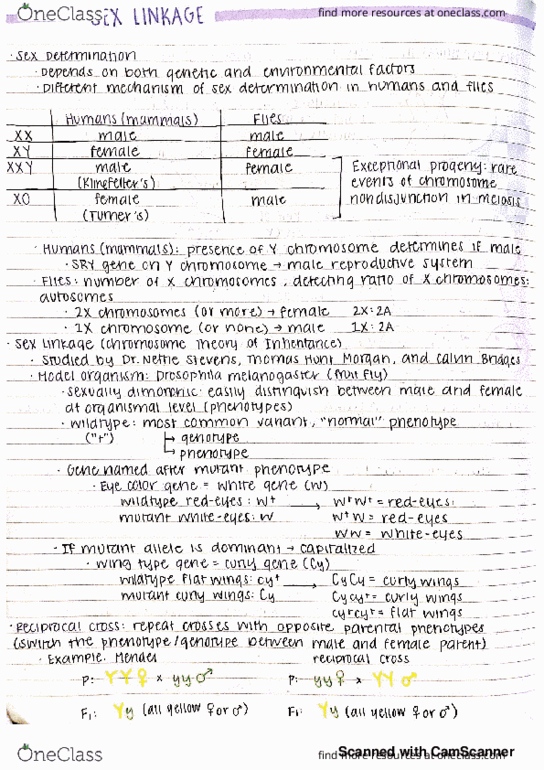 OneClass
find more resources at oneclass.com
SEX LINKAGE
· Sex Determination
· Depends on both genetic and environmental factors
· Different mechanism of sex determination in humans and flies
Humans (mammals) Flies
XX male male
XY female female
XXY male female
(Klinefelter's)
XO female male
(Turner's)
Exceptional progeny: rare
events of chromosome
nondisjunction in meiosis
· Humans (mammals): presence of Y chromosome determines if male
· SRY gene on Y chromosome → male reproductive system
· Flies: number of X chromosomes, detecting ratio of X chromosomes:
autosomes
· 2X chromosomes (or more) → female 2X:2A
· 1X chromosome (or none) → male 1X:2A
· Sex linkage (chromosome Theory of Inheritance)
· Studied by Dr. Nettie Stevens, Thomas Hunt Morgan, and Calvin Bridges
· Model organism: Drosophila melanogaster (fruit fly)
· sexually dimorphic: easily distinguish between male and female
at organismal level (phenotypes)
· wildtype: most common variant, "normal" phenotype
("+") ↳ genotype
↳ phenotype
· Gene named after mutant phenotype
· Eye color gene = white gene (w)
wildtype red-eyes: w⁺ → w⁺w⁺ = red-eyes
mutant white-eyes: w w⁺w = red-eyes
ww = white-eyes
· If mutant allele is dominant → capitalized
· wing type gene = curly gene (Cy)
wildtype flat wings: cy⁺ → CyCy = curly wings
mutant curly wings: Cy Cycy⁺ = curly wings
cy⁺cy⁺ = flat wings
· Reciprocal cross: repeat crosses with opposite parental phenotypes
(switch the phenotype/genotype between male and female parent)
· Example: Mendel reciprocal cross
P: YY ♀ x yy ♂ P: yy ♀ x YY ♂
F₁: Yy (all yellow ♀ or ♂) F₁: Yy (all yellow ♀ or ♂)
OneClass
find more resources at oneclass.com
Scanned with CamScanner